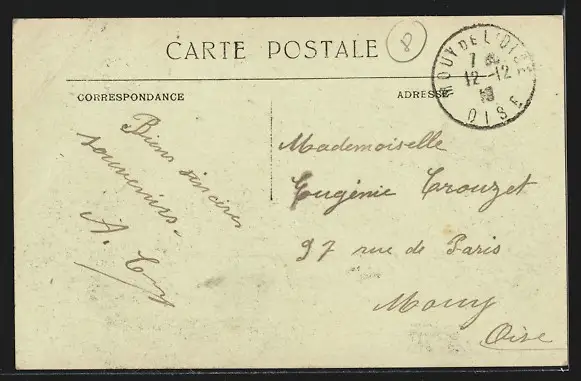 CARTE POSTALE
8
CORRESPONDANCE
ADRESSE
MOUY DE L'OISE
7
12-12
OISE
Biens sincères
souvenirs.
A.
Mademoiselle
Eugénie Crouzet
97 rue de Paris
Mouy
Oise